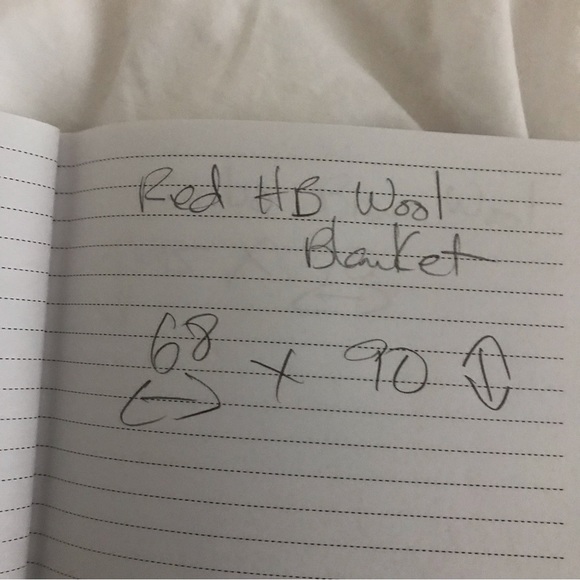 Red HB Wool
Blanket
68 x 90